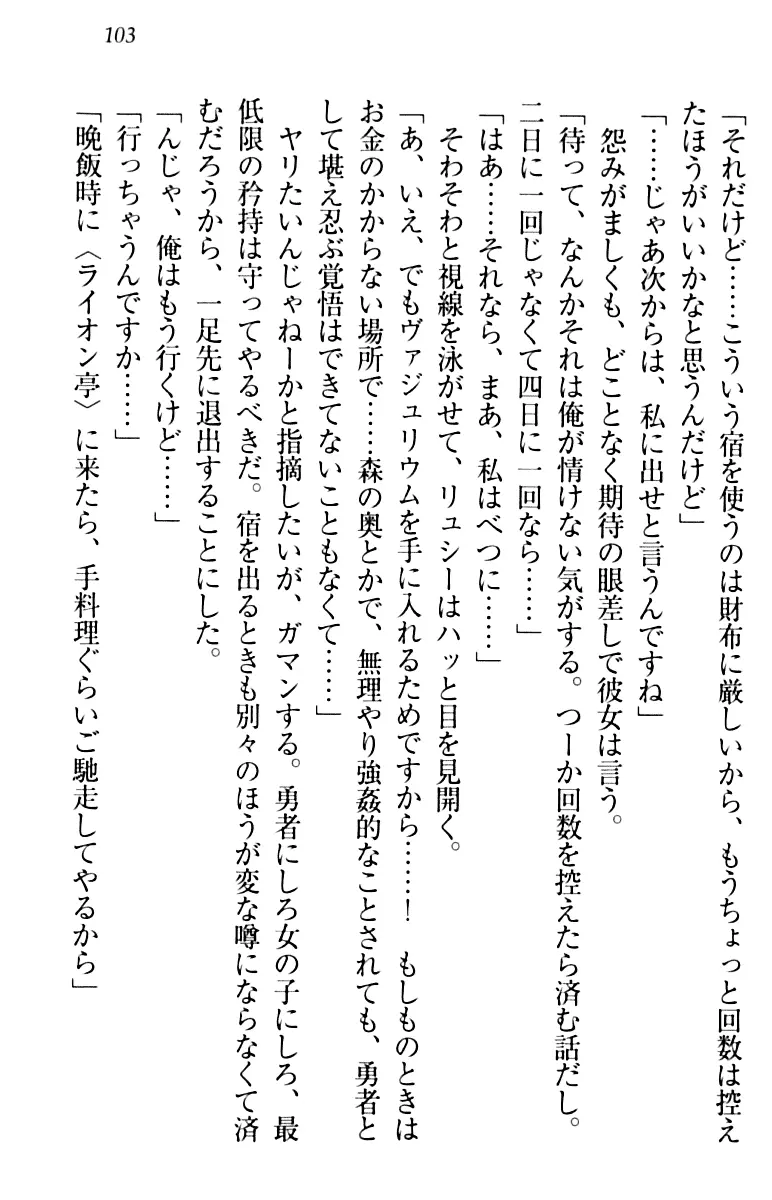 103
「それだけど……こういう宿を使うのは財布に厳しいから、もうちょっと回数は控え
たほうがいいかなと思うんだけど」
「……じゃあ次からは、私に出せと言うんですね」
怨みがましくも、どことなく期待の眼差しで彼女は言う。
「待って、なんかそれは俺が情けない気がする。つーか回数を控えたら済む話だし。
二日に一回じゃなくて四日に一回なら……」
「はあ……それなら、まあ、私はべつに……」
そわそわと視線を泳がせて、リュシーはハッと目を見開く。
「あ、いえ、でもヴァジュリウムを手に入れるためですから……！　もしものときは
お金のかからない場所で……森の奥とかで、無理やり強姦的なことされても、勇者と
して堪え忍ぶ覚悟はできてないこともなくて……」
ヤリたいんじゃねーかと指摘したいが、ガマンする。勇者にしろ女の子にしろ、最
低限の矜持は守ってやるべきだ。宿を出るときも別々のほうが変な噂にならなくて済
むだろうから、一足先に退出することにした。
「んじゃ、俺はもう行くけど……」
「行っちゃうんですか……」
「晩飯時に〈ライオン亭〉に来たら、手料理ぐらいご馳走してやるから」